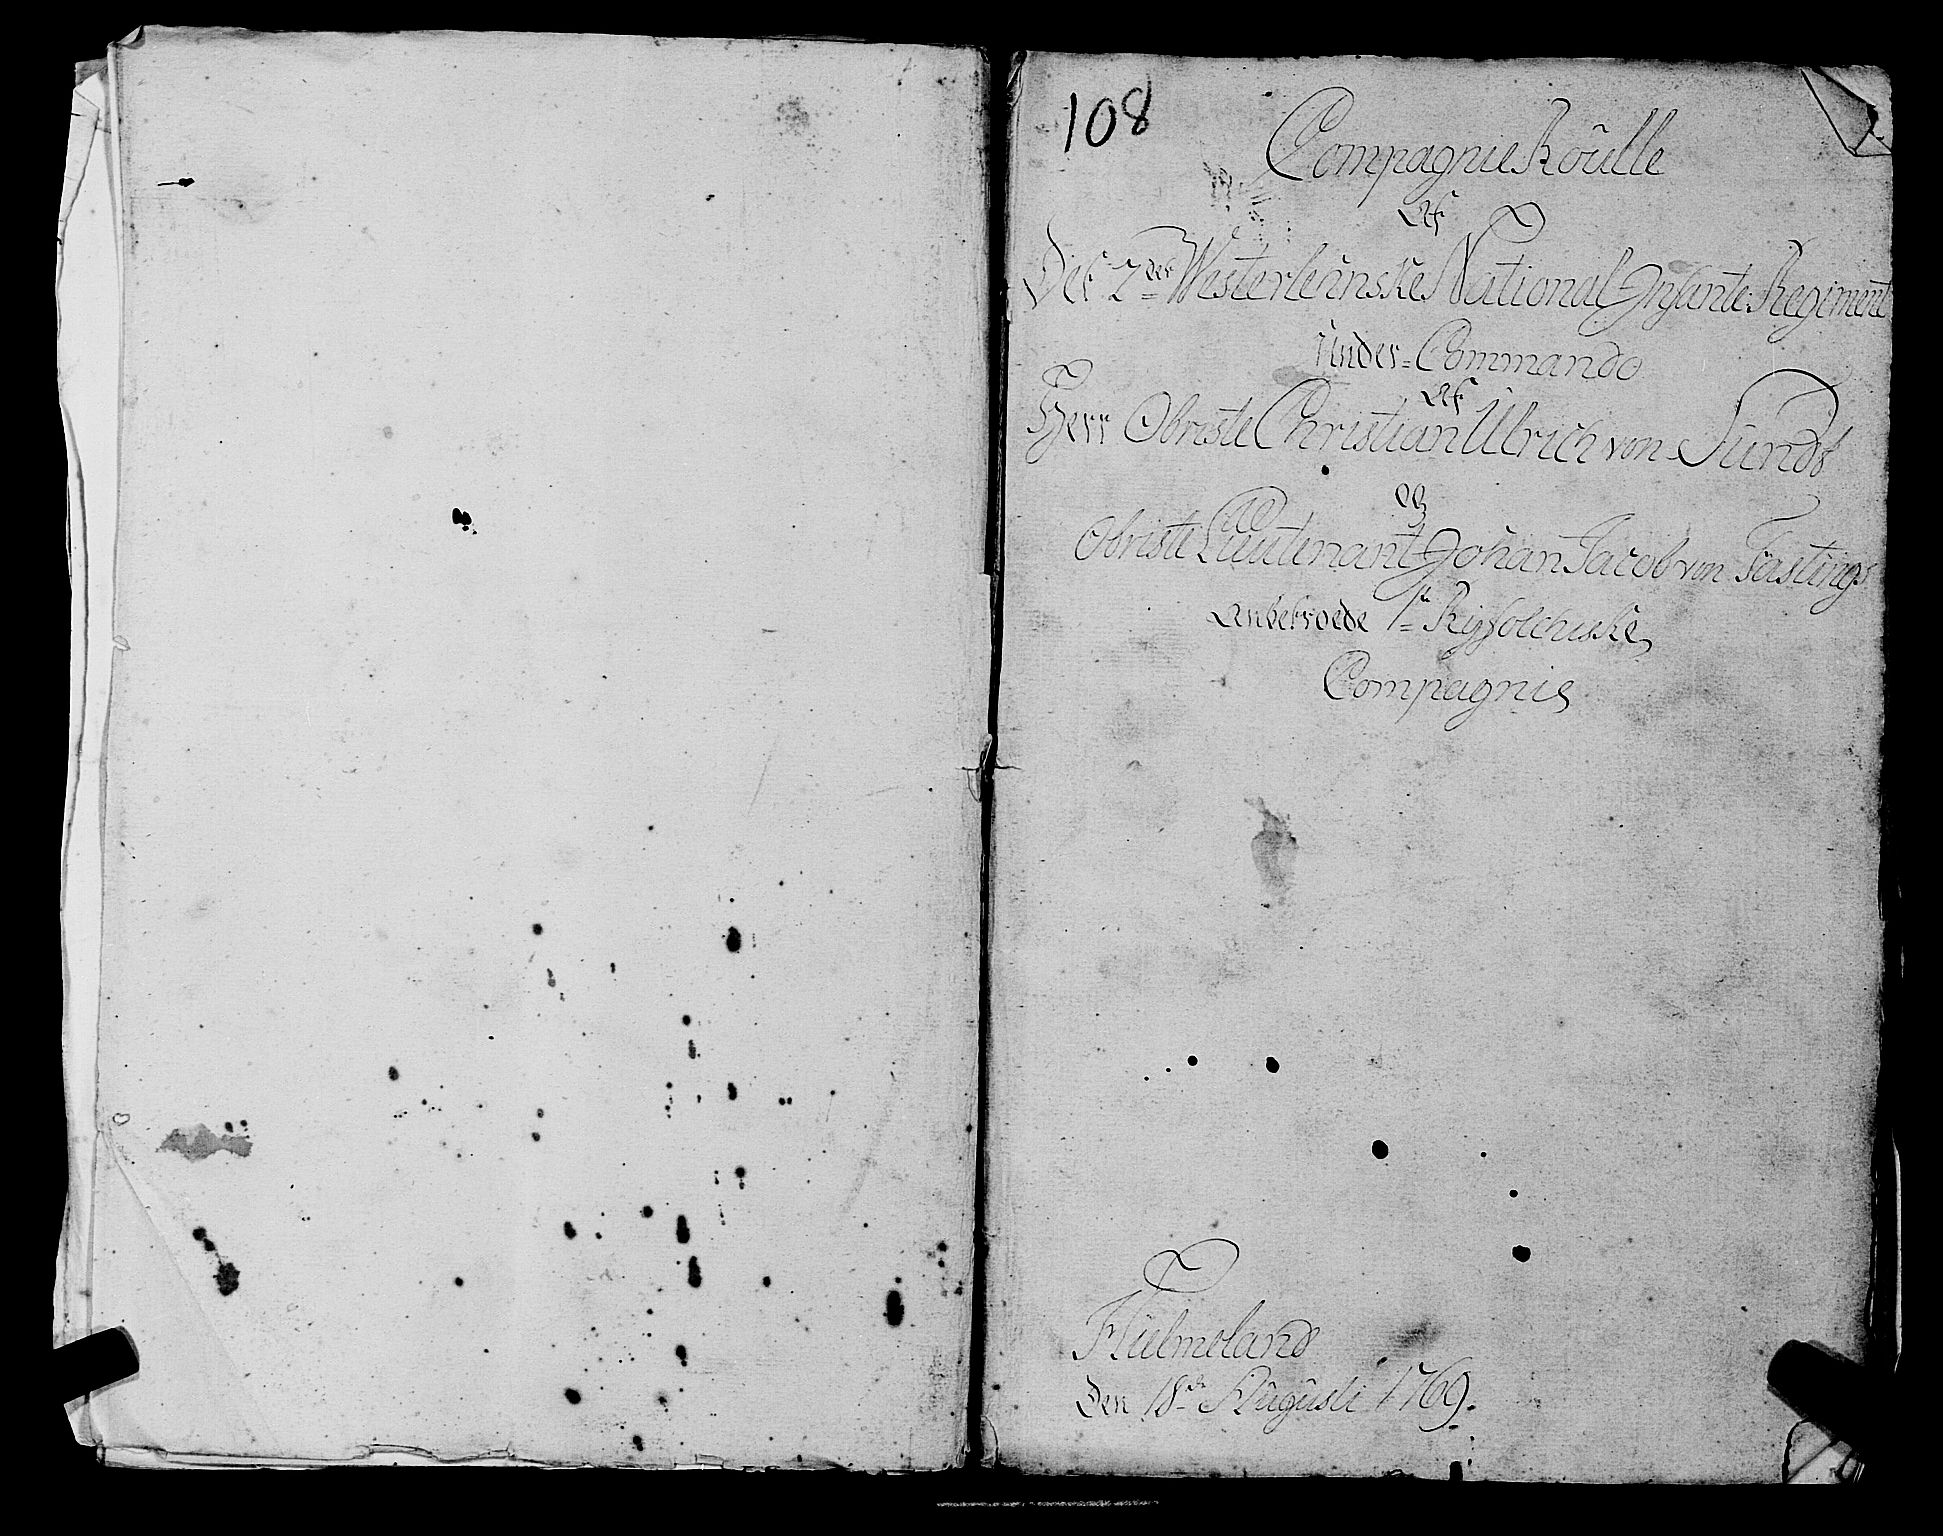 108
Compagnie Roulle
Af
Det 2det Westerlehnske National Infante: Regiment
Under Commando
Af
Herr Obriste Christian Ulrich von Sundt
og
Obriste Lieutenant Johan Jacob von Fastings
Anbetroede 1ste Ryfölchiske
Compagnie
Hielmeland
Den 18de Augusti 1769.